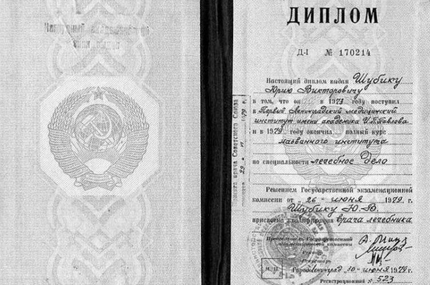 ДИПЛОМ
Д-I № 170214
Настоящий диплом выдан Шубику
Юрию Викторовичу
в том, что он в 1973 году поступил
в Первый Ленинградский медицинский
институт имени академика И.П.Павлова
и в 1979 году окончил полный курс
названного института
по специальности лечебное дело
Решением Государственной экзаменационной
комиссии от 26 июня 1979 г.
Шубику Ю.В.
присвоена квалификация врача лечебника
Председатель Государственной
Ректор
Секретарь
М.П. Город Ленинград июня 1979 г.
Регистрационный № 523
врача Советского Союза